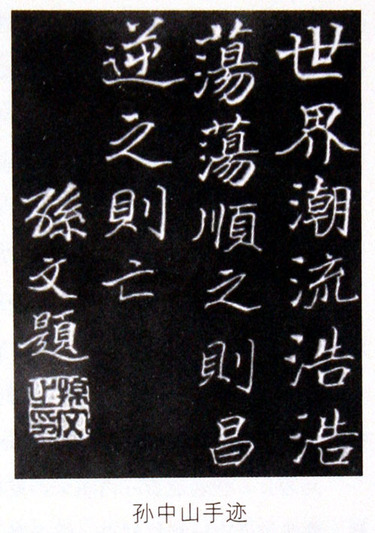 世界潮流浩浩
蕩蕩順之則昌
逆之則亡
孫文題
孫文之印
孙中山手迹